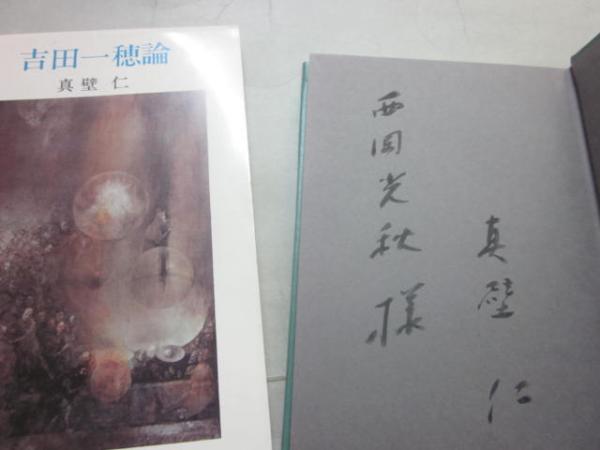 吉田一穂論
真壁 仁
西岡光秋様
真壁 仁